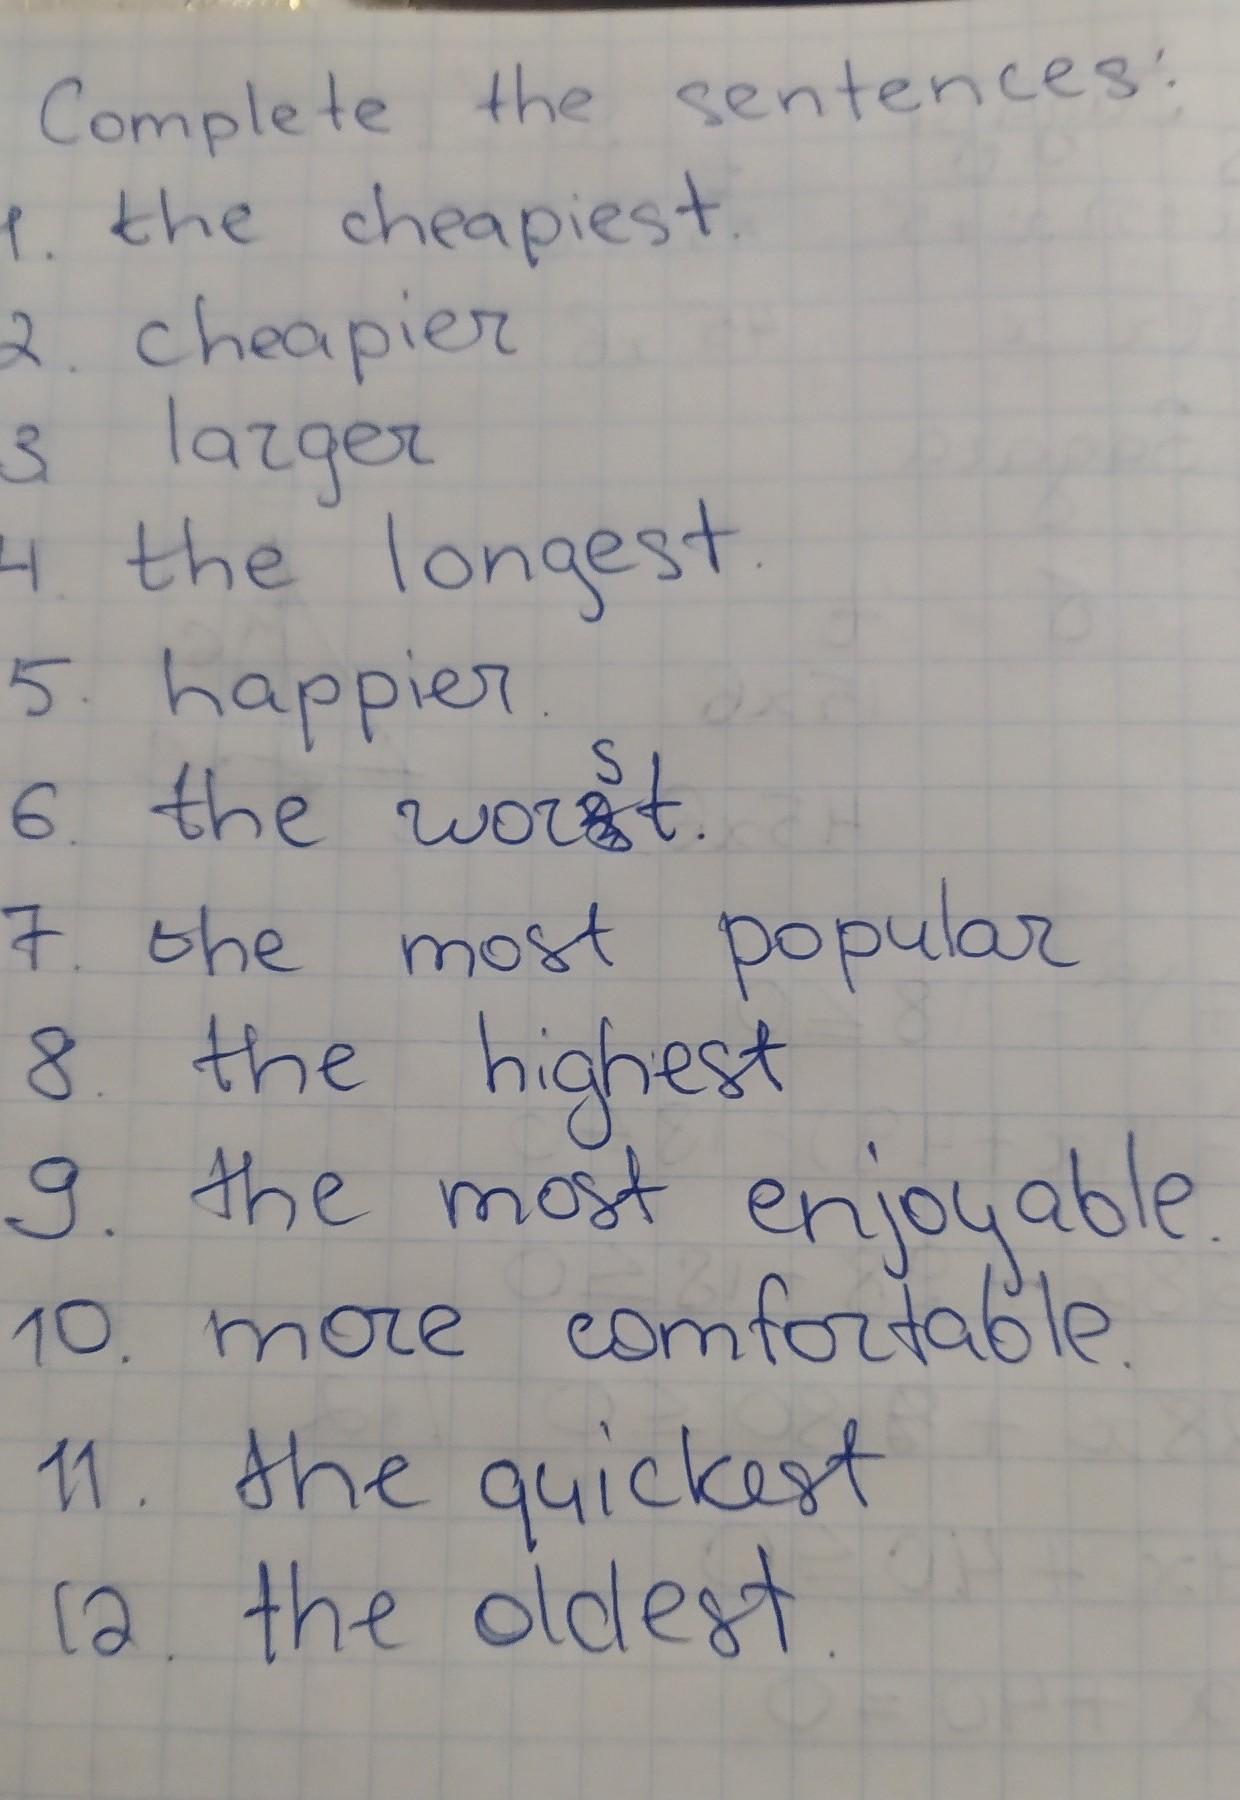 Complete the sentences:
1. the cheapiest.
2. cheapier
3 larger
4. the longest.
5. happier.
6. the worst.
7. the most popular
8. the highest
9. the most enjoyable.
10. more comfortable.
11. the quickest
12. the oldest.